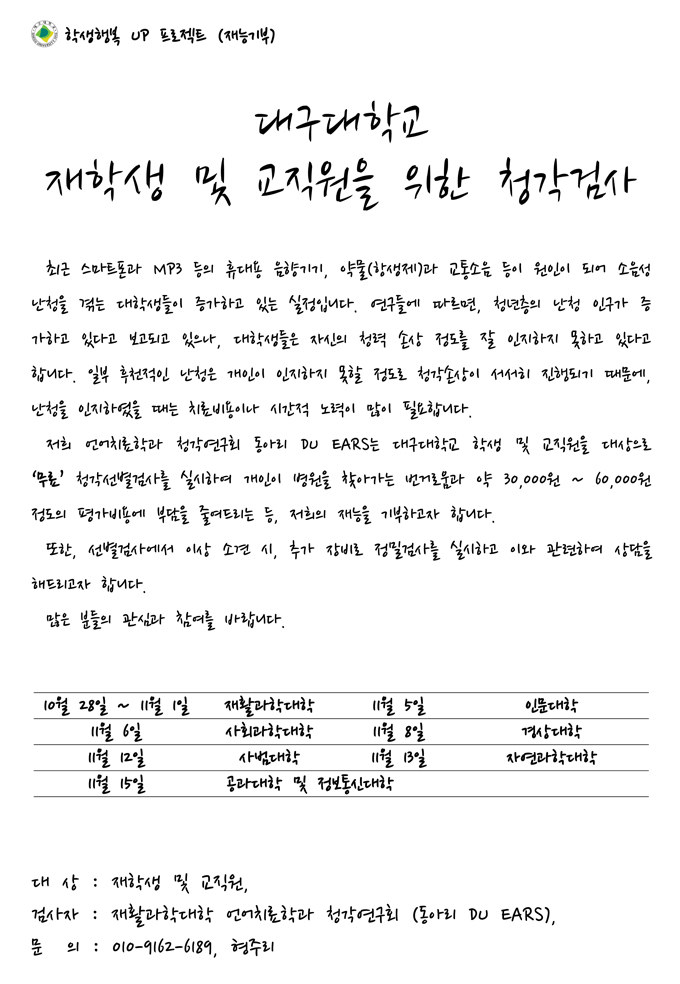 학생행복 UP 프로젝트 (재능기부)
대구대학교
재학생 및 교직원을 위한 청각검사
최근 스마트폰과 MP3 등의 휴대용 음향기기, 약물(항생제)과 교통소음 등이 원인이 되어 소음성
난청을 겪는 대학생들이 증가하고 있는 실정입니다. 연구들에 따르면, 청년층의 난청 인구가 증
가하고 있다고 보고되고 있으나, 대학생들은 자신의 청력 손상 정도를 잘 인지하지 못하고 있다고
합니다. 일부 후천적인 난청은 개인이 인지하지 못할 정도로 청각손상이 서서히 진행되기 때문에,
난청을 인지하였을 때는 치료비용이나 시간적 노력이 많이 필요합니다.
저희 언어치료학과 청각연구회 동아리 DU EARS는 대구대학교 학생 및 교직원을 대상으로
'무료' 청각선별검사를 실시하여 개인이 병원을 찾아가는 번거로움과 약 30,000원 ~ 60,000원
정도의 평가비용에 부담을 줄여드리는 등, 저희의 재능을 기부하고자 합니다.
또한, 선별검사에서 이상 소견 시, 추가 장비로 정밀검사를 실시하고 이와 관련하여 상담을
해드리고자 합니다.
많은 분들의 관심과 참여를 바랍니다.
10월 28일 ~ 11월 1일 재활과학대학 11월 5일 인문대학
11월 6일 사회과학대학 11월 8일 경상대학
11월 12일 사범대학 11월 13일 자연과학대학
11월 15일 공과대학 및 정보통신대학
대 상 : 재학생 및 교직원,
검사자 : 재활과학대학 언어치료학과 청각연구회 (동아리 DU EARS),
문 의 : 010-9162-6189, 현주리